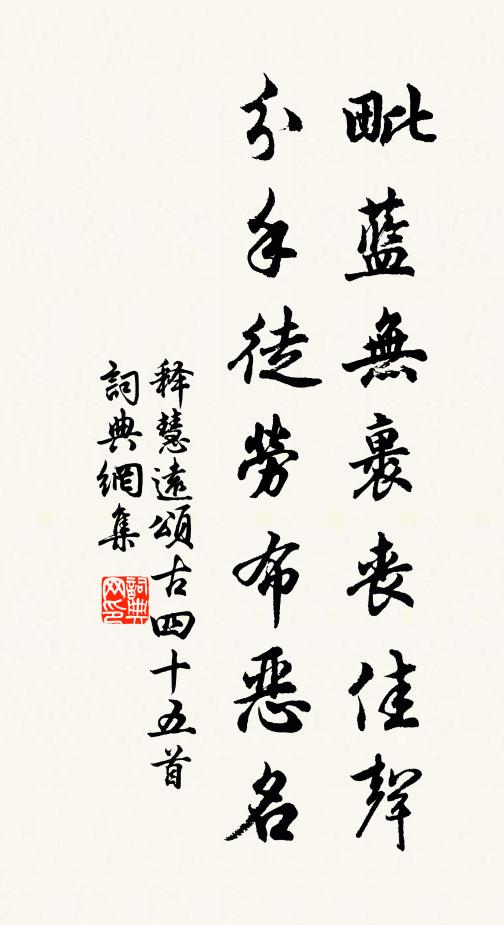 毗藍無裹丧佳聲
分手徒勞布惡名
释慧遠頌古四十五首
詞典網集
詞典网印